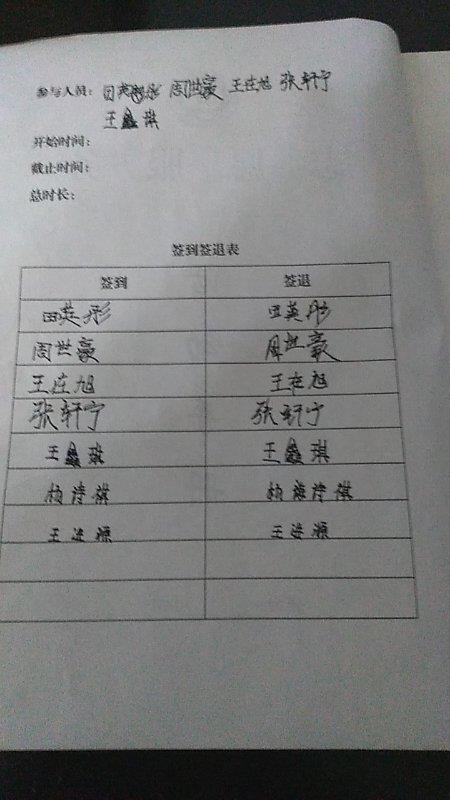 参与人员: 田英彤 周世豪 王在旭 张轩宁
王鑫琪
开始时间:
截止时间:
总时长:
签到签退表
签到 签退
田英彤 田英彤
周世豪 周世豪
王在旭 王在旭
张轩宁 张轩宁
王鑫琪 王鑫琪
杨诗祺 杨诗祺
王进源 王进源